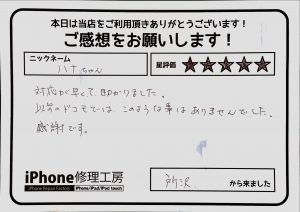 本日は当店をご利用頂きありがとうございます！
ご感想をお願いします！
ニックネーム
ハナちゃん
星評価
★★★★★
対応が早くて助かりました。
以前のドコモでは、このような事はありませんでした。
感謝です。
iPhone修理工房
iPhone Repair Factory
iPhone/iPad/iPod touch
所沢
から来ました